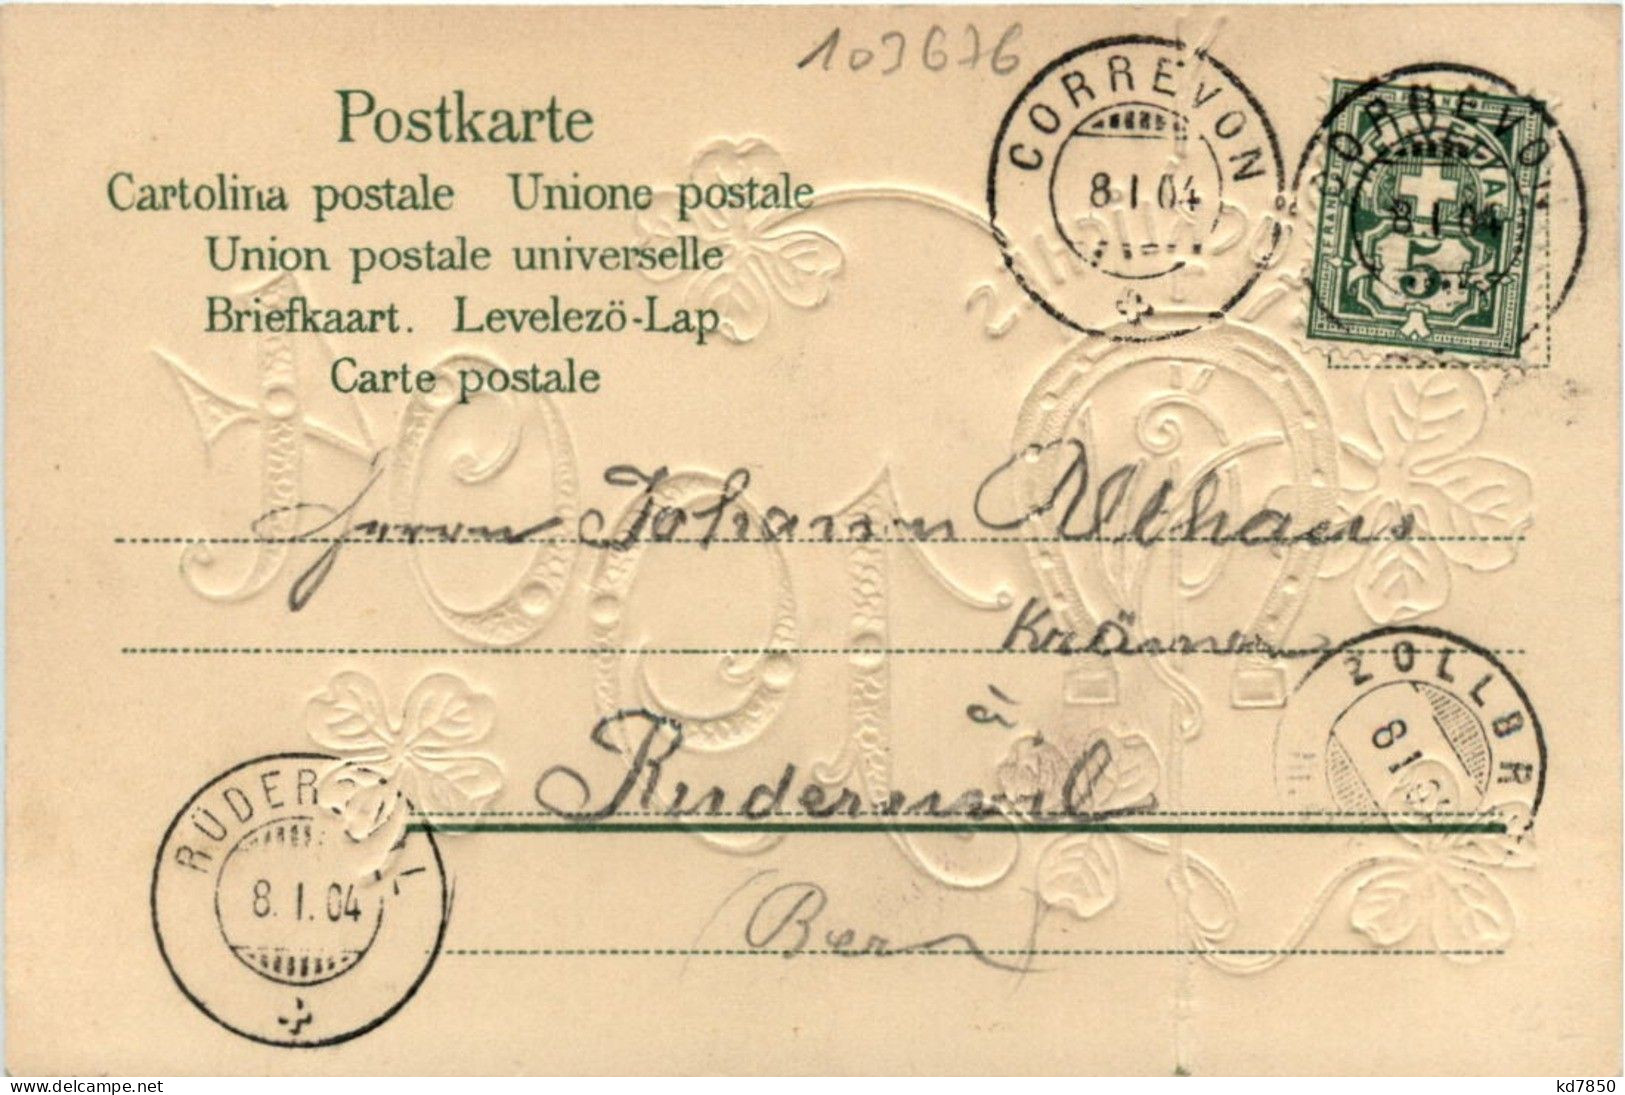 103676
Postkarte
Cartolina postale Unione postale
Union postale universelle
Briefkaart. Levelezö-Lap
Carte postale
CORREVON
8.I.04
CORREVON
8.I.04
FRANCO
HELVETIA
5
Herrn Johann Althaus
Krämer
à
Ruderswil
(Bern)
ZOLLBR
8.I.04
RÜDERSWIL
8.I.04
kd7850